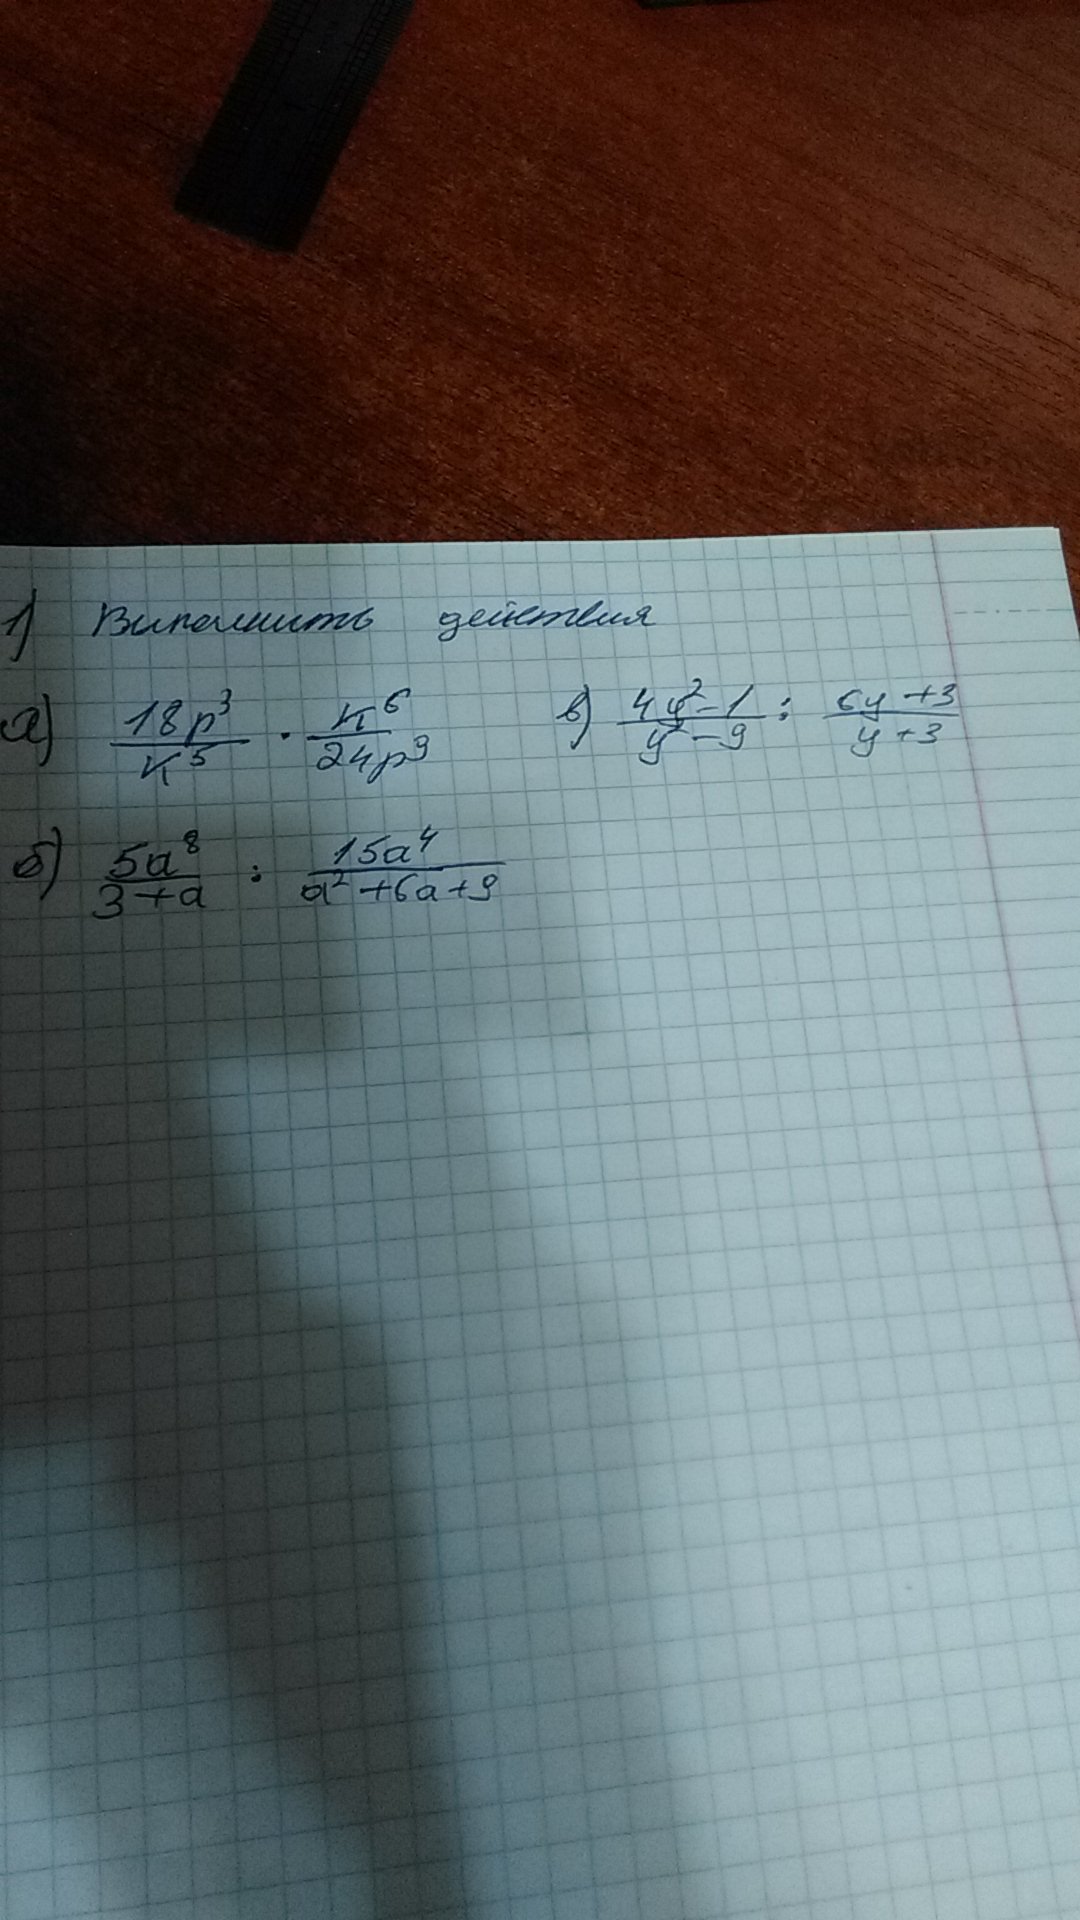 1) Выполнить действия
а) 18p³/k⁵ · k⁶/24p⁹ в) 4y²-1/y²-9 : 6y+3/y+3
б) 5a⁸/3+a : 15a⁴/a²+6a+9